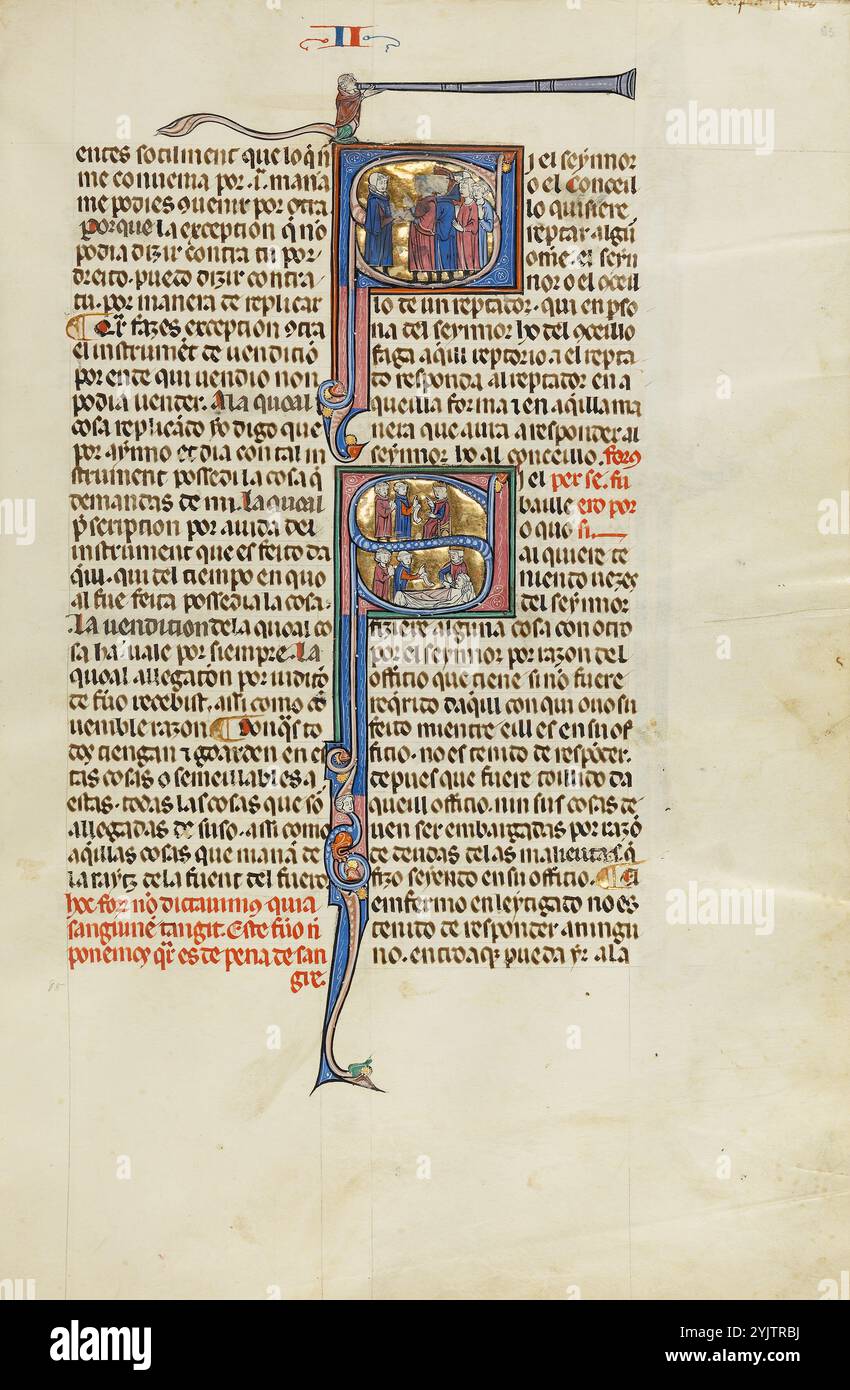 II
entes sotilment que lo q̄ ñ
me conuenia por .i. mania
me podies ꝯuenir por otra
porque la exception q̄ no
podia dizir contra tu por
dreito. puedo dizir contra
tu. por manera de replicar
Qr̄ fazes exception ꝯtra
el instrumēt de uendiciō
por ende qui uendio non
podia uender. A la quoal
cosa replicādo yo digo que
por aynno et dia con tal in
strument possedi la cosa q̄
demandas de mi. la quoal
p̄scription por auida del
instrument que es feito da
qui. qui del tiempo en quo
al fue feita possedia la cosa.
La uendition de la quoal co
sa ha ualē por siempre. La
quoal allegatōn por iudicō
de fuo recebist. assi como cō
uenible razon Donq̄s to
dos tiengan ⁊ goarden en es
tas cosas o semeillables a
estas. todas las cosas que sō
allegadas de suso. assi como
aq̄llas cosas que manā de
la rayz de la fuent del fuero
hoc for. nō dictauimꝰ quia
sanguinē tangit. Este fuo ñ
ponemos qr̄ es de pena de san
gre.
S
i el seynnor
o el Conceil
lo quisiere
reptar algū
ome. el seyn
nor o el ꝯceil
lo de un reptador. qui en ꝑso
na del seynnor ho del ꝯceillo
faga aq̄ill reptorio a el repta
do responda al reptador en a
queilla forma ⁊ en aq̄illa ma
nera que auia a responder al
seynnor ho al conceillo. forꝰ
S
i el per se. fu
baille ero por
o quo si.
al quiere te
niendo uezes
del seynnor
fiziere alguna cosa con otro
por el seynnor por razon del
officio que tiene si nō fuere
req̄rido daq̄ill con qui ouo su
feito mientre eill es en su of
ficio. no es tenido de respōder.
depues que fuere toillido da
queill officio. nin sus cosas de
uen ser embargadas por razō
de dendas de las malieutas. q̄
fizo seyendo en su officio. El
enfermo en leytigado no es
tenido de responder a ningu
no. entroa q̄ pueda yr a la
alamy
Image ID: 2YJTRBJ
www.alamy.com